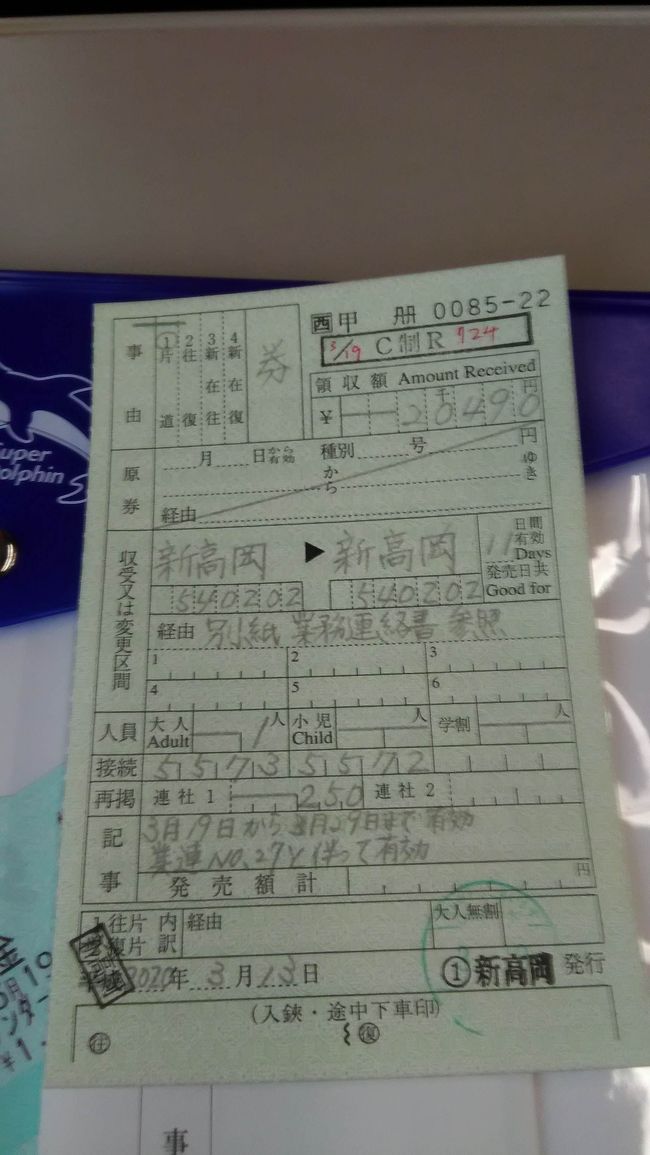 西 甲 冊 0085-22
3/19 C制R 724
事由
①片道
2往復
3新在往
4新在復
券
領収額 Amount Received
¥ 20490 千 円
原券
月 日から有効 種別 号 円
から ゆき
経由
収受又は変更区間
新高岡 ▶ 新高岡
540202 540202
11 日間有効 Days
発売日共 Good for
経由 別紙 業務連絡書 参照
1 2 3
4 5 6
人員 大人 Adult 1人 小児 Child 人 学割 人
接続 5573 5572
再掲 連社1 250 連社2
記事
3月19日から3月29日まで有効
業連NO.27と伴って有効
発売額計 円
1往片 内訳 経由 大人無割
複片
2020年3月13日 ①新高岡 発行
(入鋏・途中下車印)
往 復
Super
Dolphin
金
月19
¥1
事